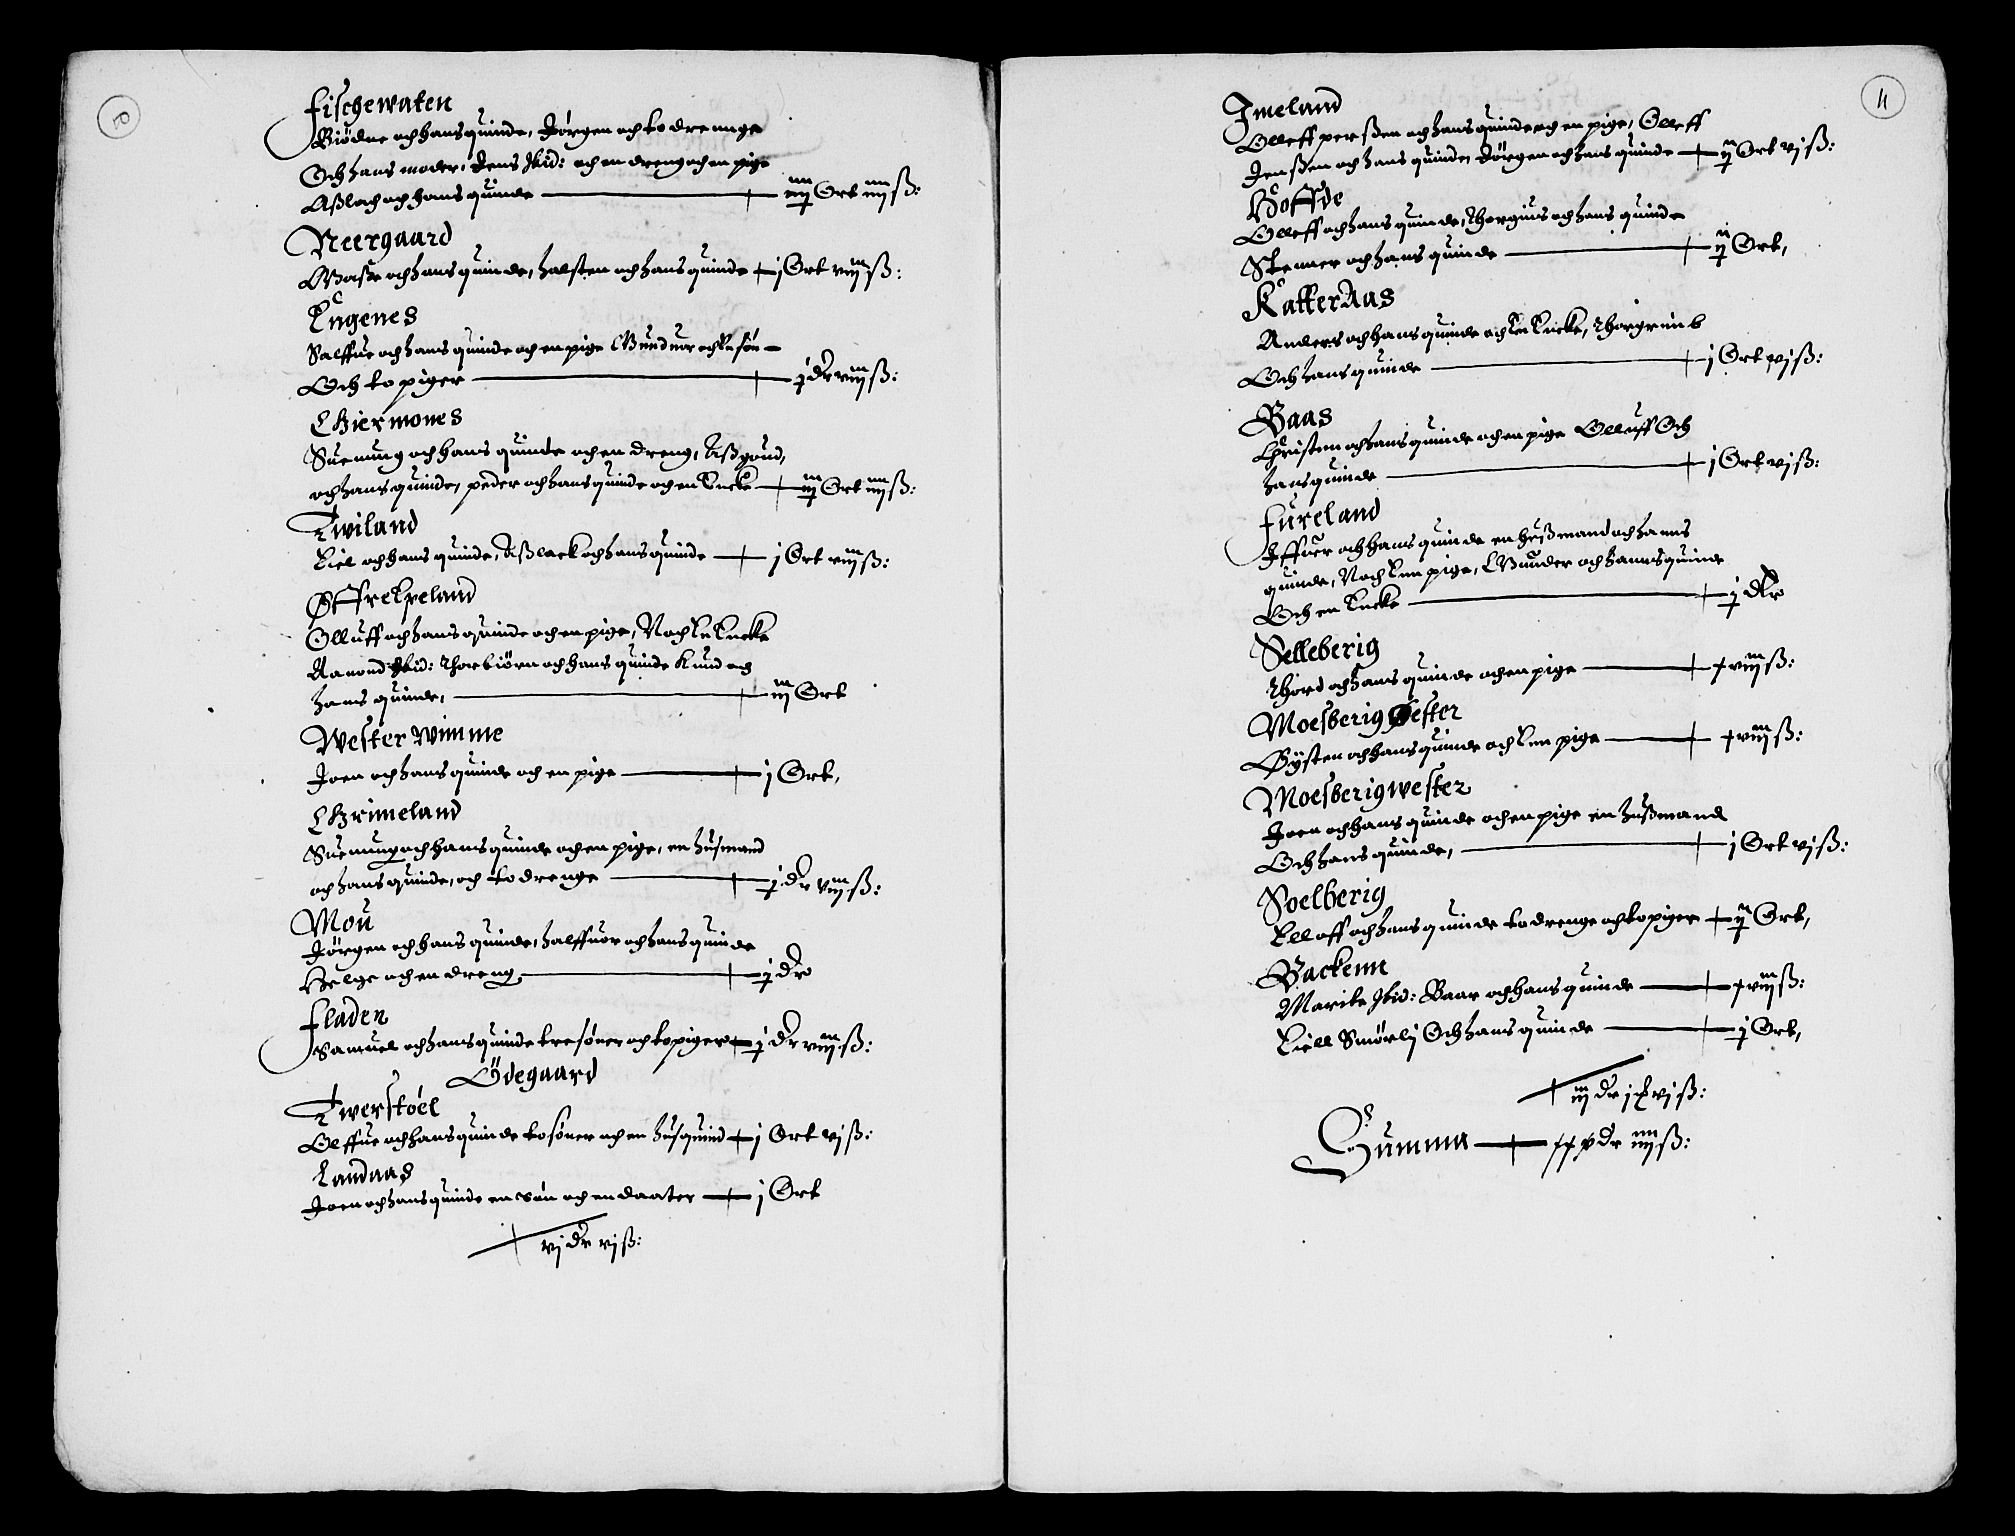 Fischewaten
Biödne och hans quinde, Jörgen och to drennge
Och hans moder, Jens Ibid: och en dreng och en pige
Aßlach och hans quinde — iiij Ort iiij ß:
Neergaard
Waße och hans quinde, halsten och hans quinde — j Ort viij ß:
Lugenes
Salffue och hans quinde och en pige Gunduor och en sön
Och to piger — j dr viij ß:
Giermones
Suenung och hans quinde och en dreng, Aßgoud,
och hans quinde, peder och hans quinde och en Encke — iij Ort iiij ß:
Twiland
Kiel och hans quinde, Aßlack och hans quinde — j Ort viij ß:
Øffrekueland
Olluff och hans quinde och en pige, Noch en Encke
Aanond Ibid: Thorbiörn och hans quinde Knud och
hans quinde, — iij Ort
Wester Wimme
Joen och hans quinde och en pige — j Ort,
Grimeland
Suenung och hans quinde och en pige, en husmand
och hans quinde, och to drenge — j dr viij ß:
Mou
Jörgen och hans quinde, halffuor och hans quinde
Helge och en dreng — j dr
Fladen
Samuel och hans quinde tre söner och to piger — j dr viij ß:
Ödegaard
Twerstöel
Olffue och hans quinde to söner och en husquind — j Ort vj ß:
Landaas
Joen och hans quinde en sön och en daater — j Ort
vj dr vj ß:
11
Imeland
Olleff perßen och hans quinde och en pige, Olleff
Jenßen och hans quinde, Jörgen och hans quinde — ij Ort vj ß:
Hoffde
Olleff och hans quinde, Thorgius och hans quinde
Stenner och hans quinde — ij Ort,
KatterAas
Anders och hans quinde och en Encke, Thorgrimb
Och hans quinde — j Ort vj ß:
Baas
Christen och hans quinde och en pige Olluff Och
hans quinde — j Ort vj ß:
Fureland
Iffuer och hans quinde en hußmand och hanns
quinde, Noch en pige, Gunder och hanns quinde
Och en Encke — j dlr
Selleberig
Thord och hans quinde och en pige — viij ß:
Moesberig Øester
Öÿsten och hans quinde och en pige — viij ß:
Moesberig wester
Joen och hans quinde och en pige en hußmand
Och hans quinde, — j Ort vj ß:
Soelberig
Elloff och hans quinde to drenge och to piger — ij Ort,
Backenn
Marite Ibid: Baar och hans quinde — viij ß:
Kiell Smörlj Och hans quinde — j Ort,
iij dr j vj ß:
Summa — dr iiij ß: